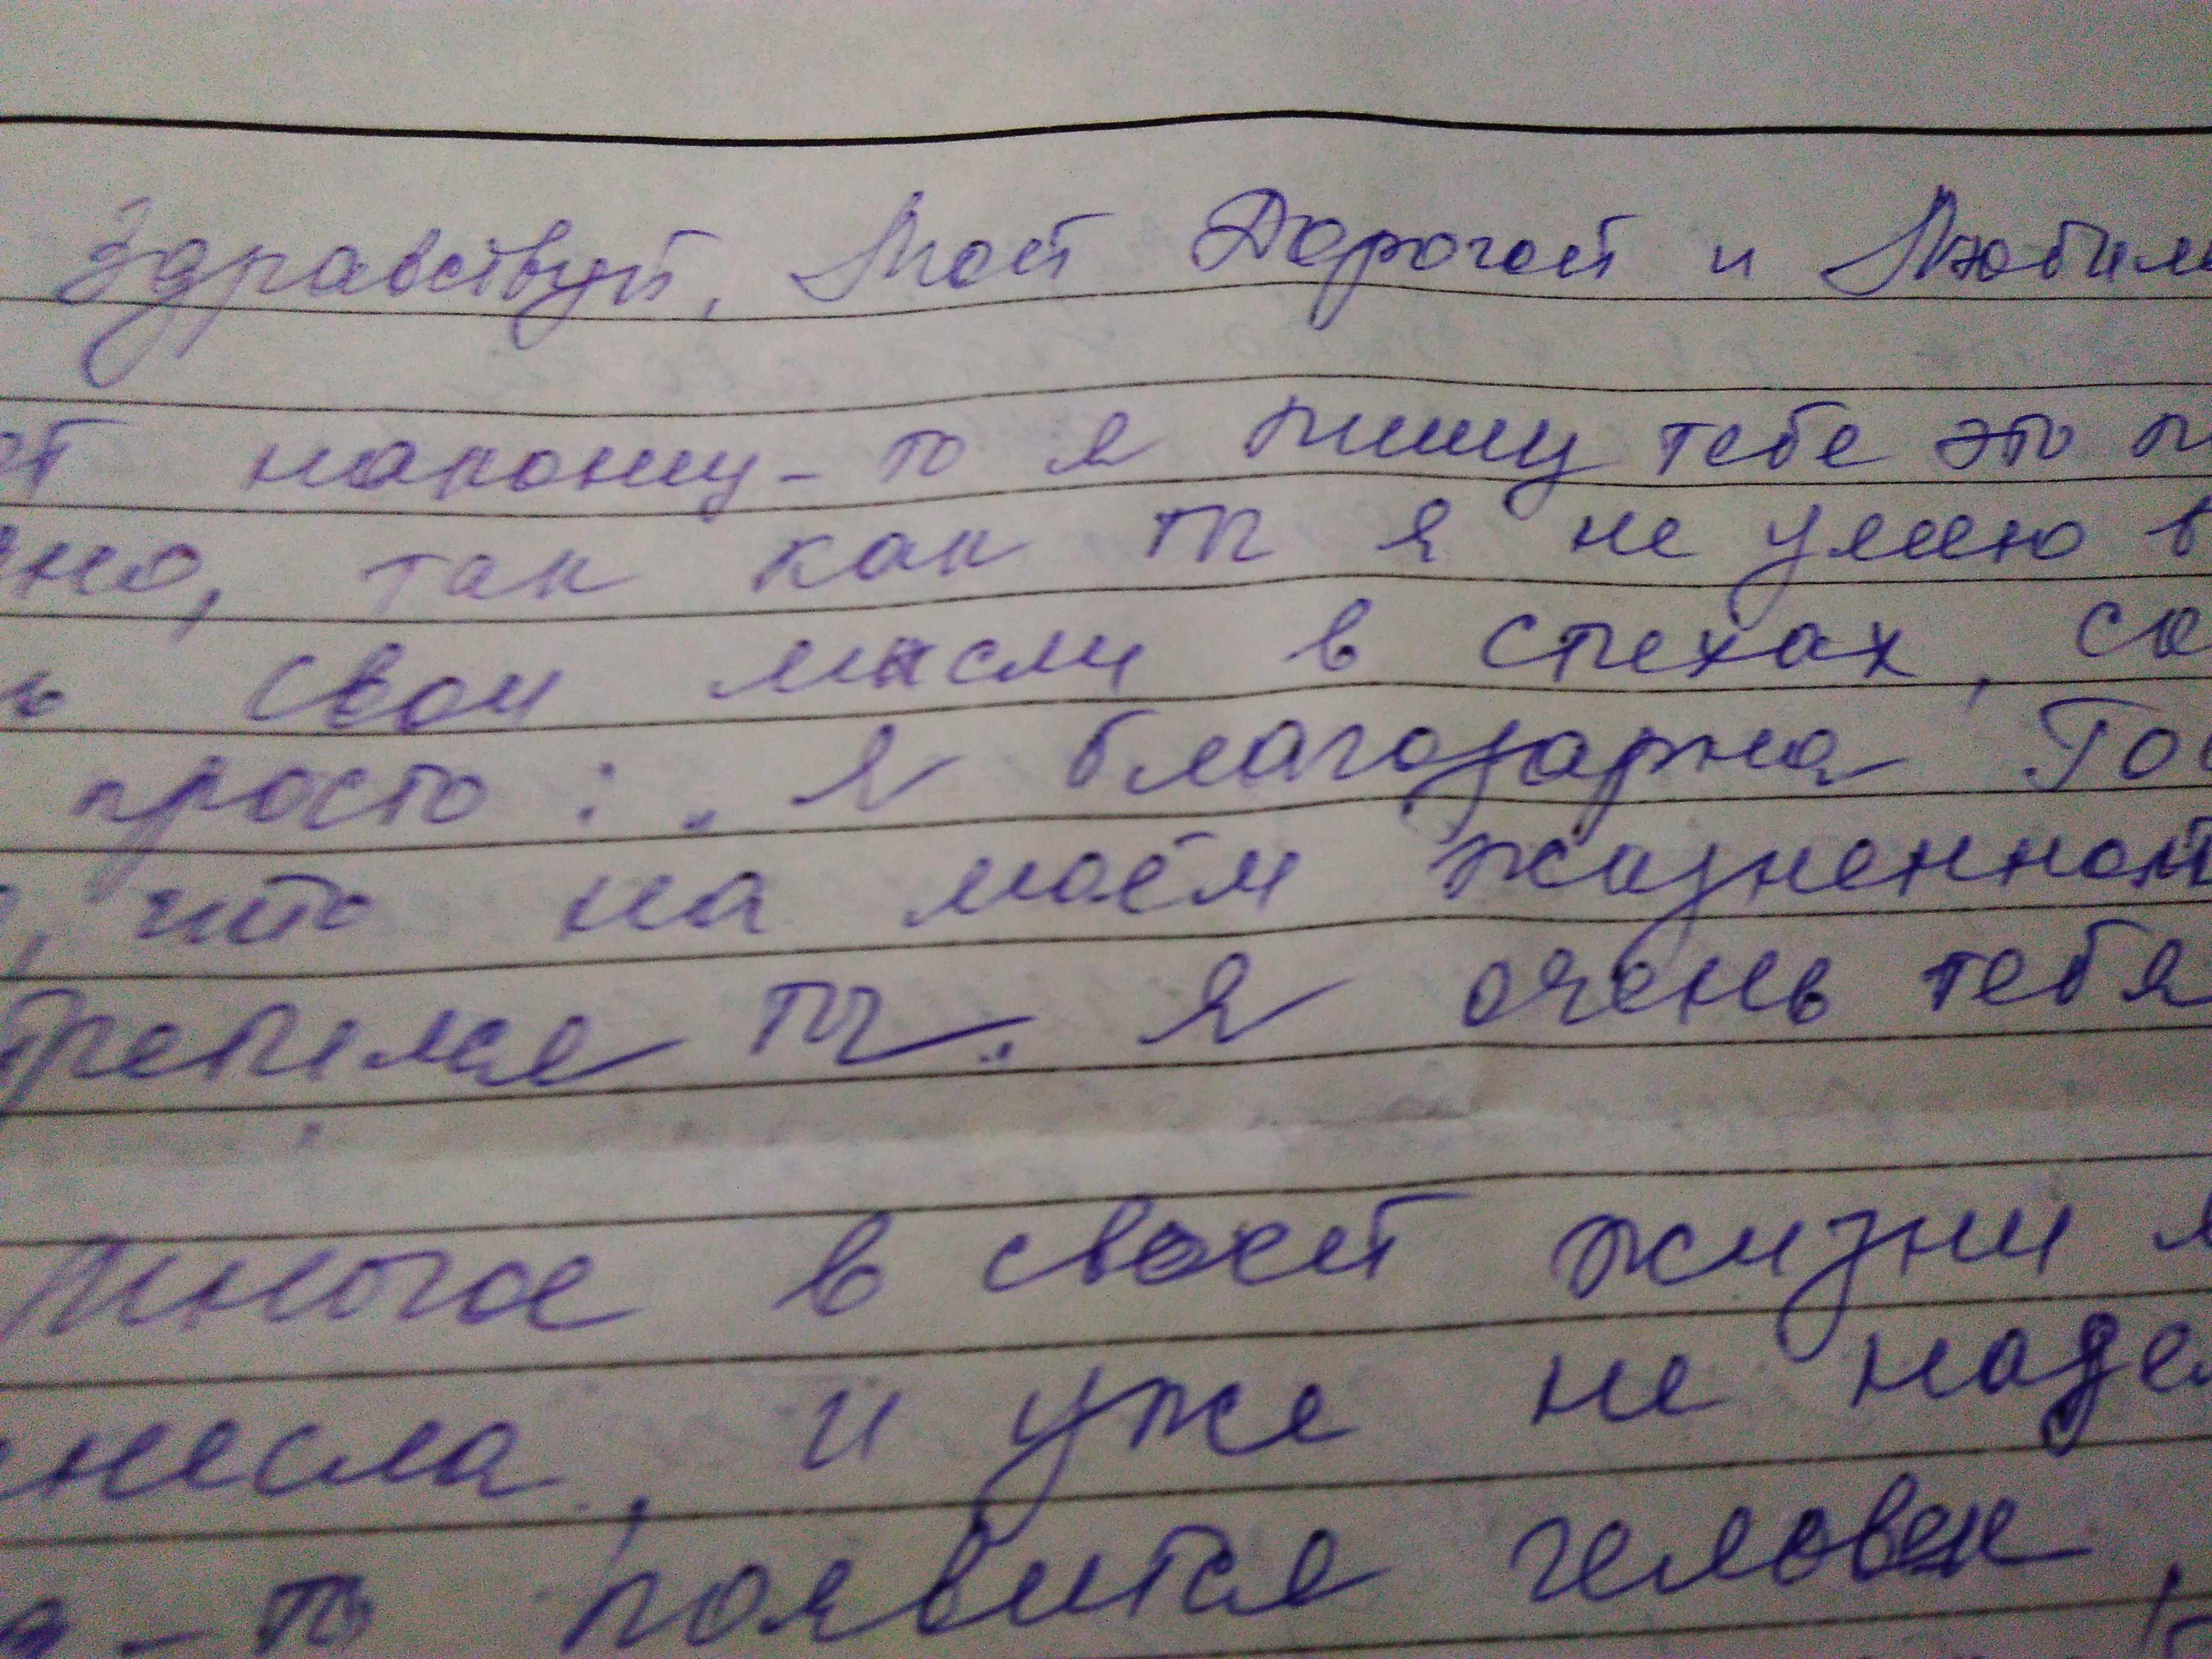 Здравствуй, Мой Дорогой и Любим
наконец-то я пишу тебе это п
но, так как ты я не умею в
ь свои мысли в стихах, со
просто: „Я благодарна Гос
, что на моём жизненном
третился ты.“ Я очень тебя
Многое в своей жизни я
несла, и уже не наде
-то появится человек,